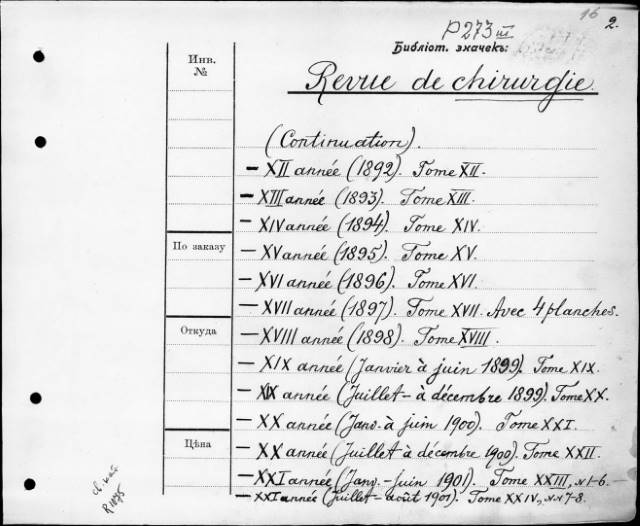 16
2.
P273 III
Библіот. значекъ:
Инв.
№
Revue de chirurgie.
(Continuation).
— XII année (1892). Tome XII.
— XIII année (1893). Tome XIII.
— XIV année (1894). Tome XIV.
По заказу
— XV année (1895). Tome XV.
— XVI année (1896). Tome XVI.
— XVII année (1897). Tome XVII. Avec 4 planches.
Откуда
— XVIII année (1898). Tome XVIII.
— XIX année (Janvier à juin 1899). Tome XIX.
— XIX année (Juillet — à décembre 1899). Tome XX.
— XX année (Janv. à juin 1900). Tome XXI.
Цѣна
— XX année (Juillet à décembre 1900). Tome XXII.
— XXI année (Janv. - juin 1901). Tome XXIII, N 1-6. —
— XXI année (Juillet - août 1901). Tome XXIV, N.N 7-8.